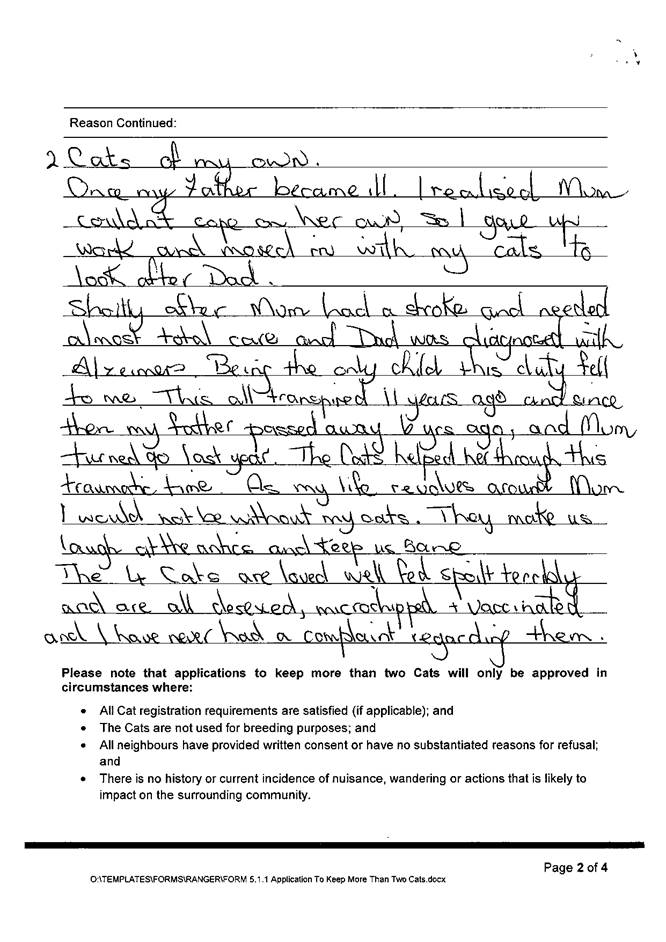 Reason Continued:
2 Cats of my own.
Once my father became ill. I realised Mum
couldn't cope on her own, so I gave up
work and moved in with my cats to
look after Dad.
Shortly after Mum had a stroke and needed
almost total care and Dad was diagnosed with
Alzeimers. Being the only child this duty fell
to me. This all transpired 11 years ago and since
then my father passed away 6 yrs ago, and Mum
turned 90 last year. The Cats helped her through this
traumatic time. As my life revolves around Mum
I would not be without my cats. They make us
laugh at the antics and keep us sane
The 4 Cats are loved well fed spoilt terribly
and are all desexed, microchipped + vaccinated
and I have never had a complaint regarding them.
Please note that applications to keep more than two Cats will only be approved in
circumstances where:
• All Cat registration requirements are satisfied (if applicable); and
• The Cats are not used for breeding purposes; and
• All neighbours have provided written consent or have no substantiated reasons for refusal;
and
• There is no history or current incidence of nuisance, wandering or actions that is likely to
impact on the surrounding community.
Page 2 of 4
O:\TEMPLATES\FORMS\RANGER\FORM 5.1.1 Application To Keep More Than Two Cats.docx